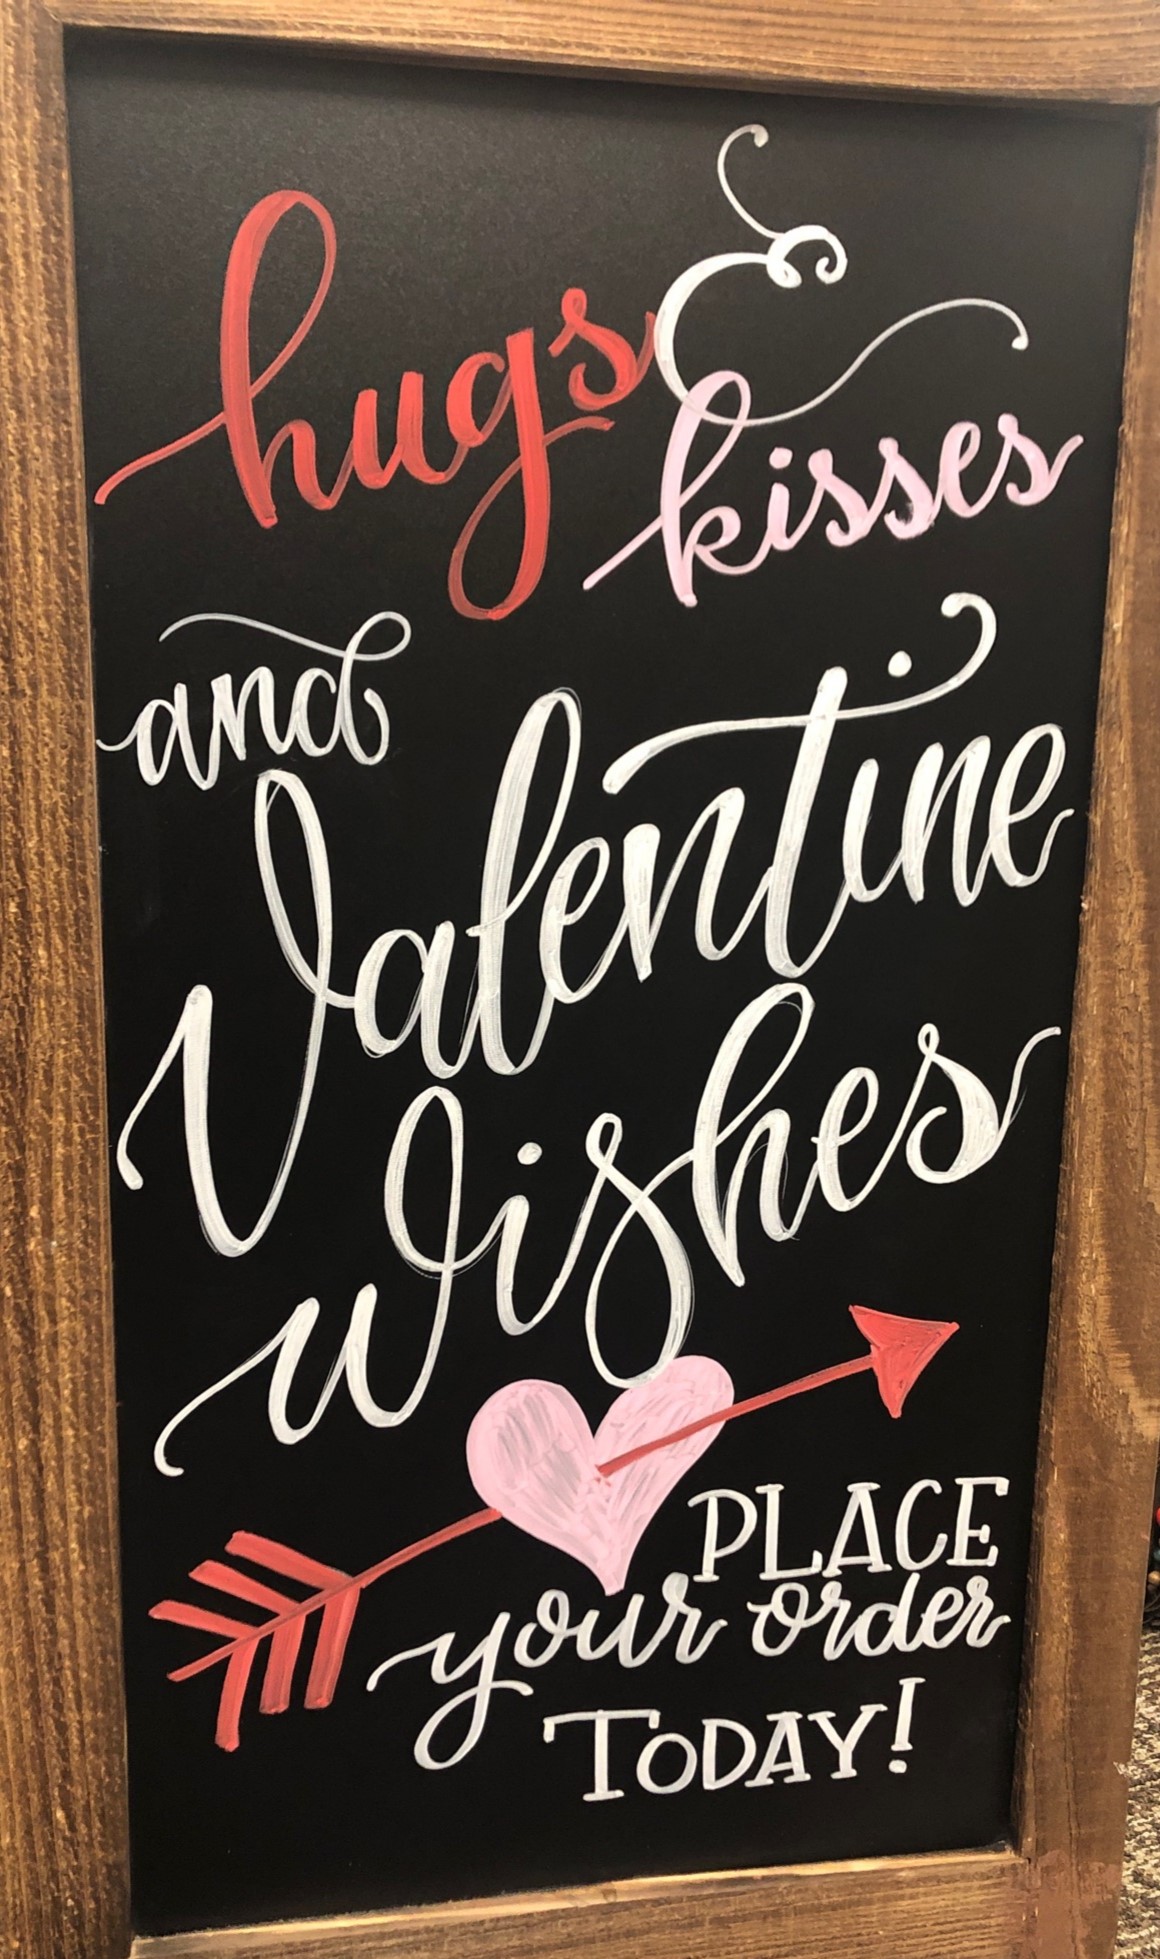 hugs &
kisses
and
Valentine
wishes
PLACE
your order
TODAY!